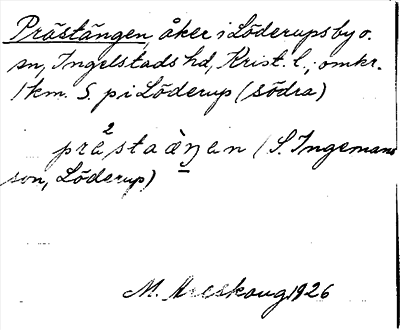 Prästängen, åker i Löderups by o.
sn, Ingelstads hd, Krist. l.; omkr.
1 km. S. p i Löderup (södra)
prä²staàŋen (S. Ingemans
son, Löderup)
M. Areskoug 1926